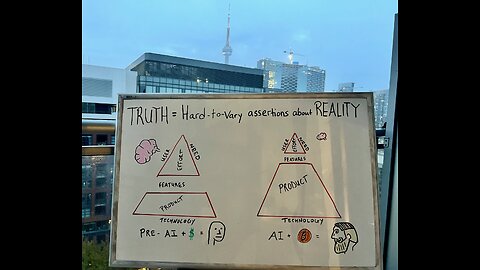 TRUTH = Hard-to-Vary assertions about REALITY
USER EFFORT NEED
FEATURES
PRODUCT
TECHNOLOGY
PRE-AI + $ =
USER NEED
FEATURES
PRODUCT
TECHNOLOGY
AI + =